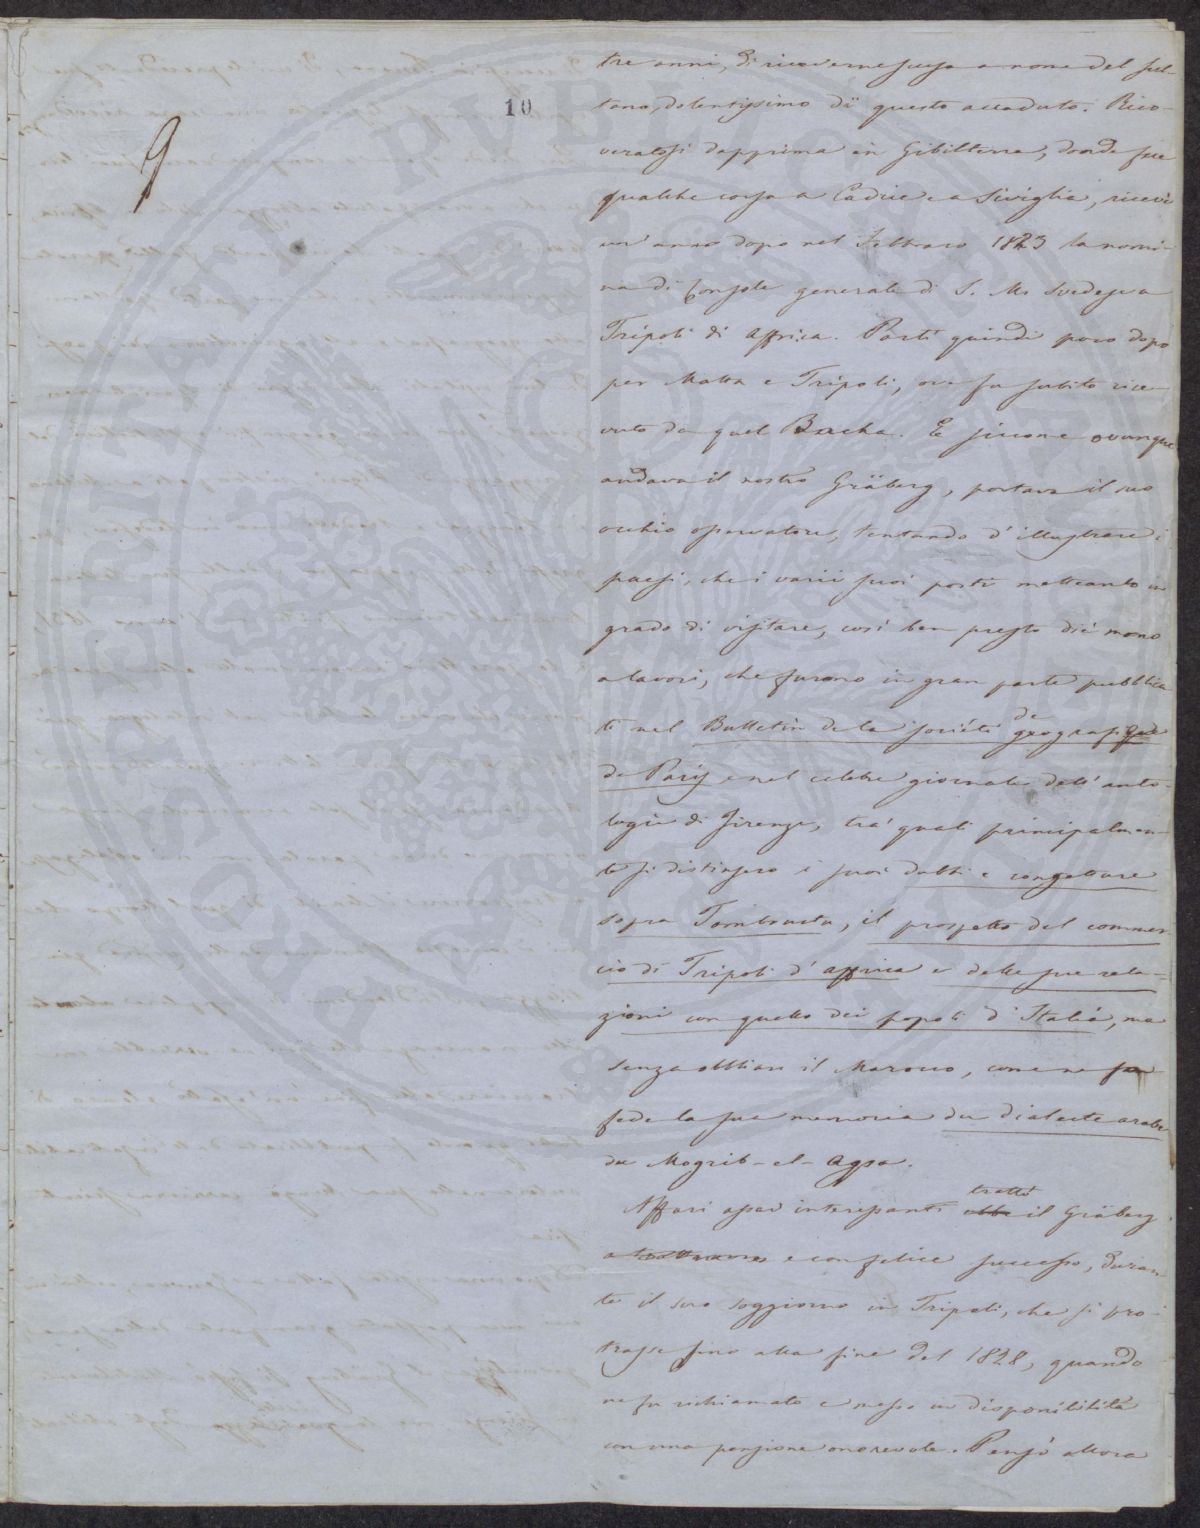 10
9
tre anni, di ricoverne scusa a nome del sul-
tano, dolentissimo di questo accaduto. Rico-
veratosi dapprima in Gibilterra, donde fece
qualche corsa a Cadice e a Siviglia, ricevè
un' anno dopo nel Febbraro 1823 la nomi-
na di Console generale di S. M. Svedese a
Tripoli di Affrica. Partì quindi poco dopo
per Malta e Tripoli, ove fu subito rice-
vuto da quel Bacha. E siccome ovunque
andava il nostro Gräberg, portava il suo
occhio osservatore, tentando d'illustrare i
paesi, che i varii suoi posti metteanlo in
grado di visitare, così ben presto diè mano
a lavori, che furono in gran parte pubblica
ti nel Bulletin de la société de geografique
de Paris e nel celebre giornale dell' anto-
logia di Firenze, tra' quali principalmen-
te si distinsero i suoi dubbi e congetture
sopra Tombouctu, il prospetto del commer
cio di Tripoli d'affrica e delle sue rela-
zioni con quello dei popoli d'Italia, ma
senza obbliare il Marocco, come ne fa
fede la sua memoria du dialecte arabe
du Mogrib-el-Aqsa.
Affari assai interessanti trattò il Gräberg
e con felice successo, duran
te il suo soggiorno in Tripoli, che si pro-
trasse fino alla fine del 1828, quando
ne fu richiamato e messo in disponibilità
con una pensione onorevole. Pensò allora